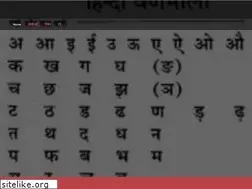 हिन्दी वर्णमाला
अ आ इ ई उ ऊ ए ऐ ओ औ
क ख ग घ (ङ)
च छ ज झ (ञ)
ट ठ ड ढ ण ड़ ढ़
त थ द ध न
प फ ब भ म
sitelike.org